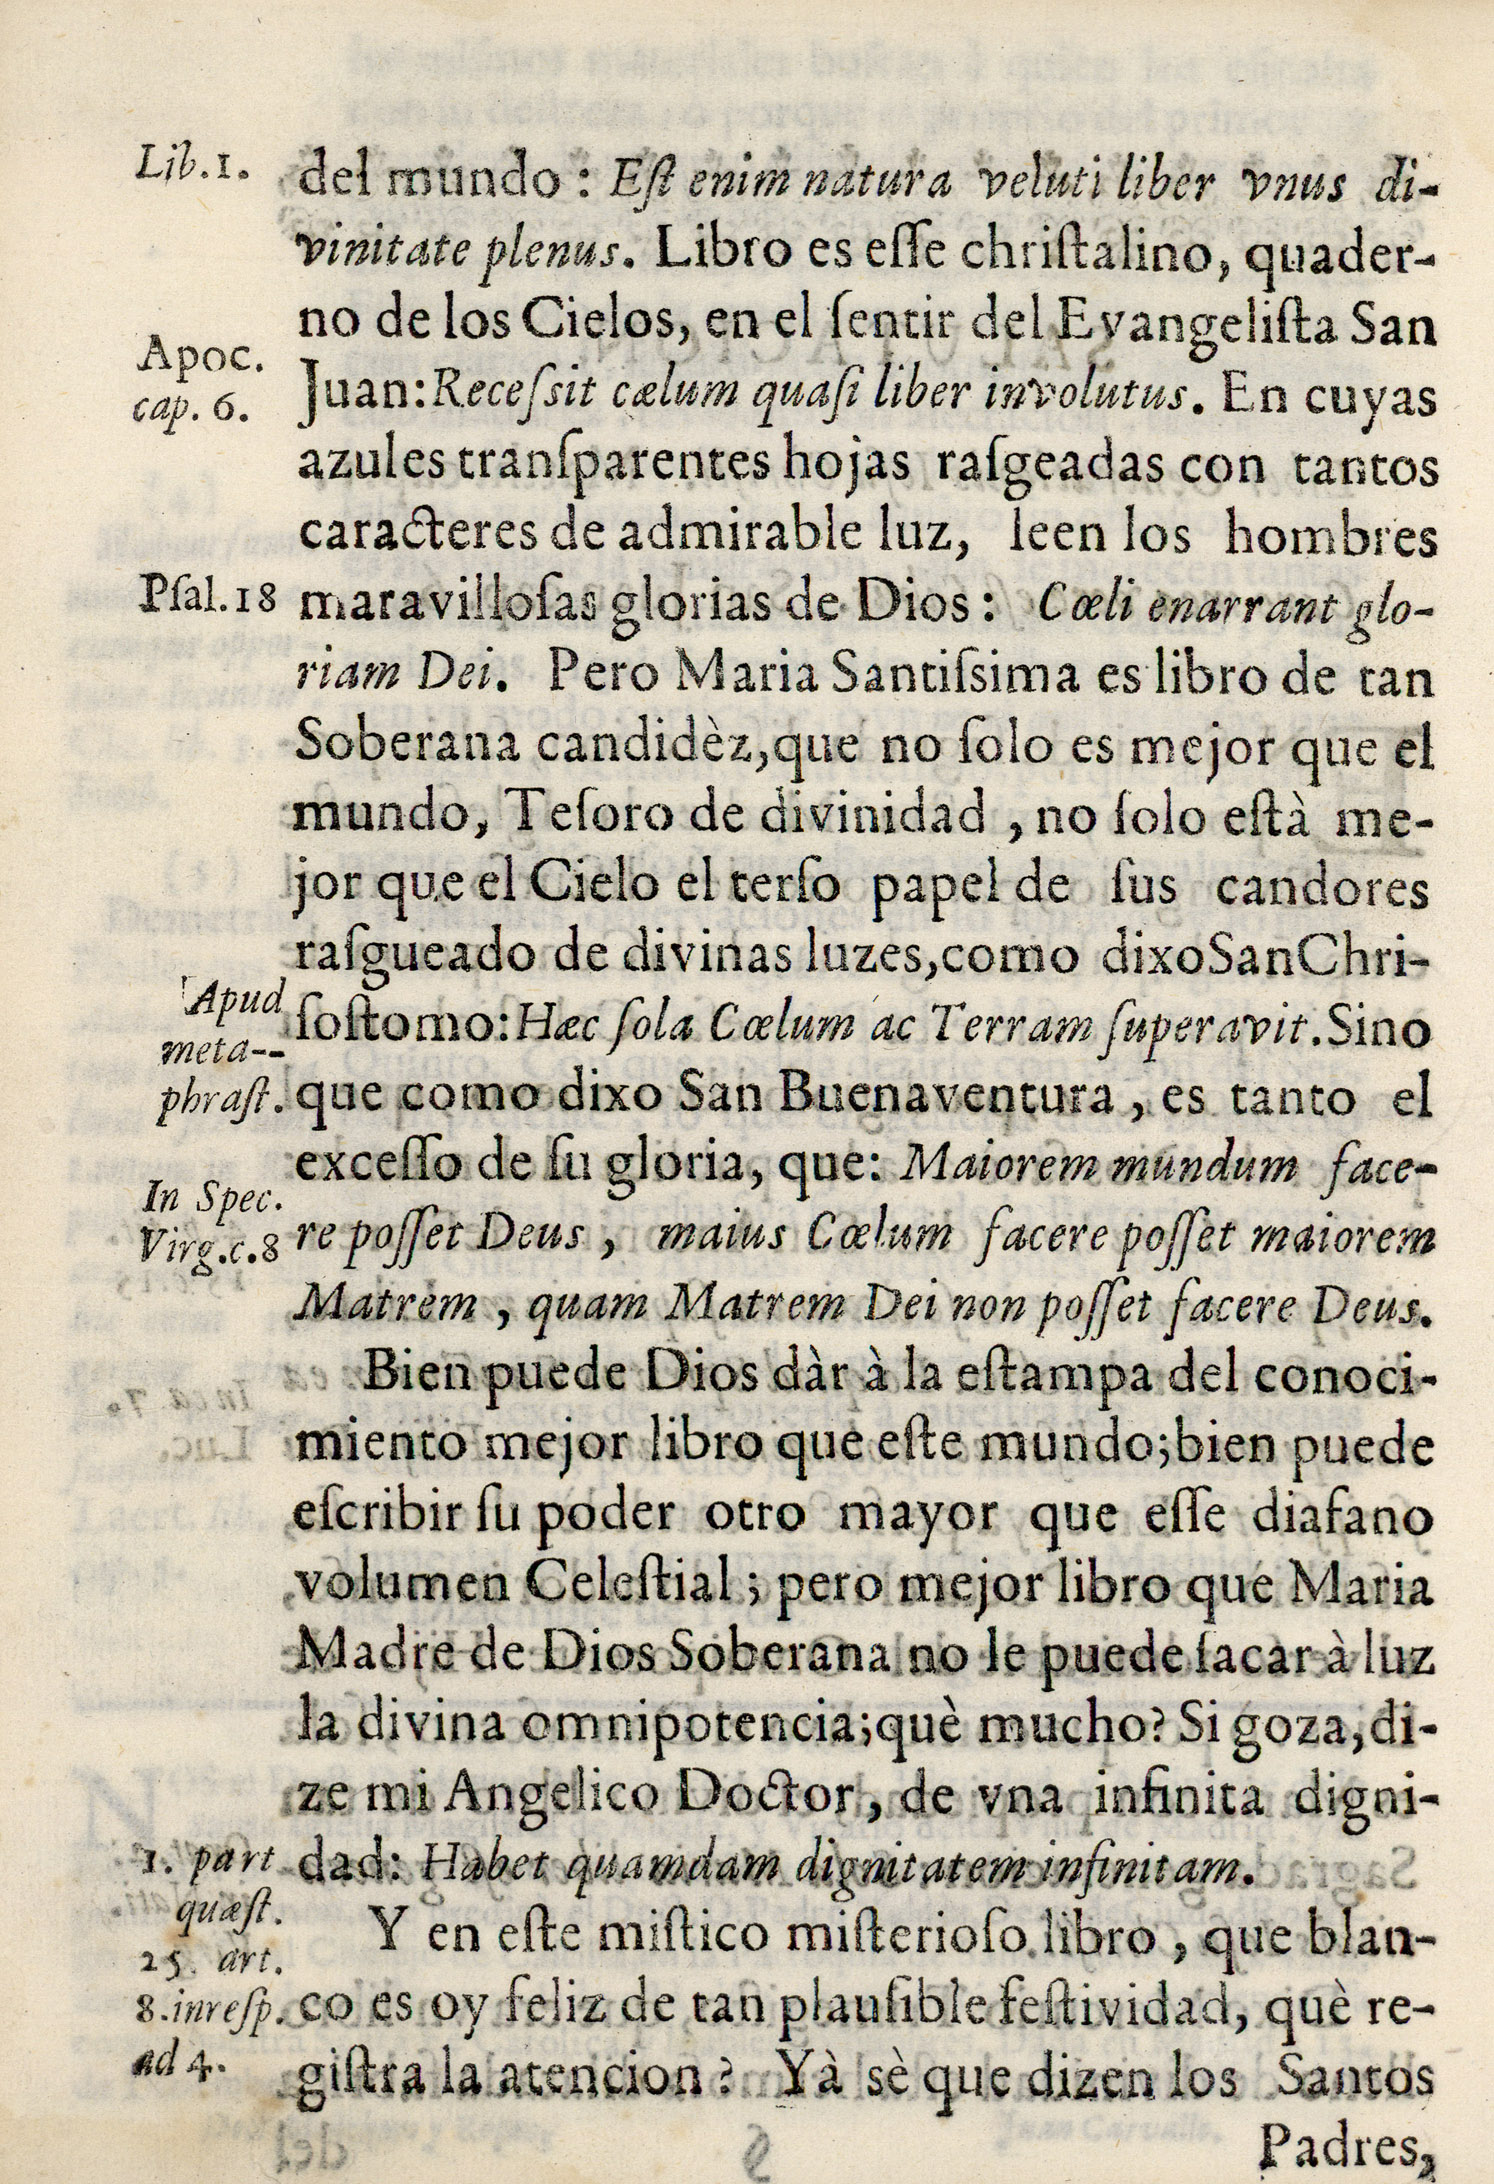 Lib.1.
del mundo : Eſt enim natura veluti liber vnus di-
vinitate plenus. Libro es eſſe chriſtalino, quader-
no de los Cielos, en el ſentir del Evangeliſta San
Apoc.
cap. 6.
Juan: Receſsit cælum quaſi liber involutus. En cuyas
azules tranſparentes hojas raſgeadas con tantos
caracteres de admirable luz, leen los hombres
Pſal.18
maravilloſas glorias de Dios : Cœli enarrant glo-
riam Dei. Pero Maria Santiſsima es libro de tan
Soberana candidèz, que no ſolo es mejor que el
mundo, Teſoro de divinidad , no ſolo eſtà me-
jor que el Cielo el terſo papel de ſus candores
raſgueado de divinas luzes, como dixo San Chri-
Apud
meta--
phraſt.
ſoſtomo: Hæc ſola Cœlum ac Terram ſuperavit. Sino
que como dixo San Buenaventura , es tanto el
exceſſo de ſu gloria, que: Maiorem mundum face-
In Spec.
Virg.c.8
re poſſet Deus , maius Cœlum facere poſſet maiorem
Matrem , quam Matrem Dei non poſſet facere Deus.
Bien puede Dios dàr à la eſtampa del conoci-
miento mejor libro que eſte mundo; bien puede
eſcribir ſu poder otro mayor que eſſe diafano
volumen Celeſtial ; pero mejor libro que Maria
Madre de Dios Soberana no le puede ſacar à luz
la divina omnipotencia; què mucho? Si goza, di-
ze mi Angelico Doctor , de vna infinita digni-
1. part
quæſt.
25. art.
8. in reſp.
ad 4.
dad: Habet quamdam dignitatem infinitam.
Y en eſte miſtico miſterioſo libro , que blan-
co es oy feliz de tan plauſible feſtividad, què re-
giſtra la atencion ? Yà sè que dizen los Santos
Padres,